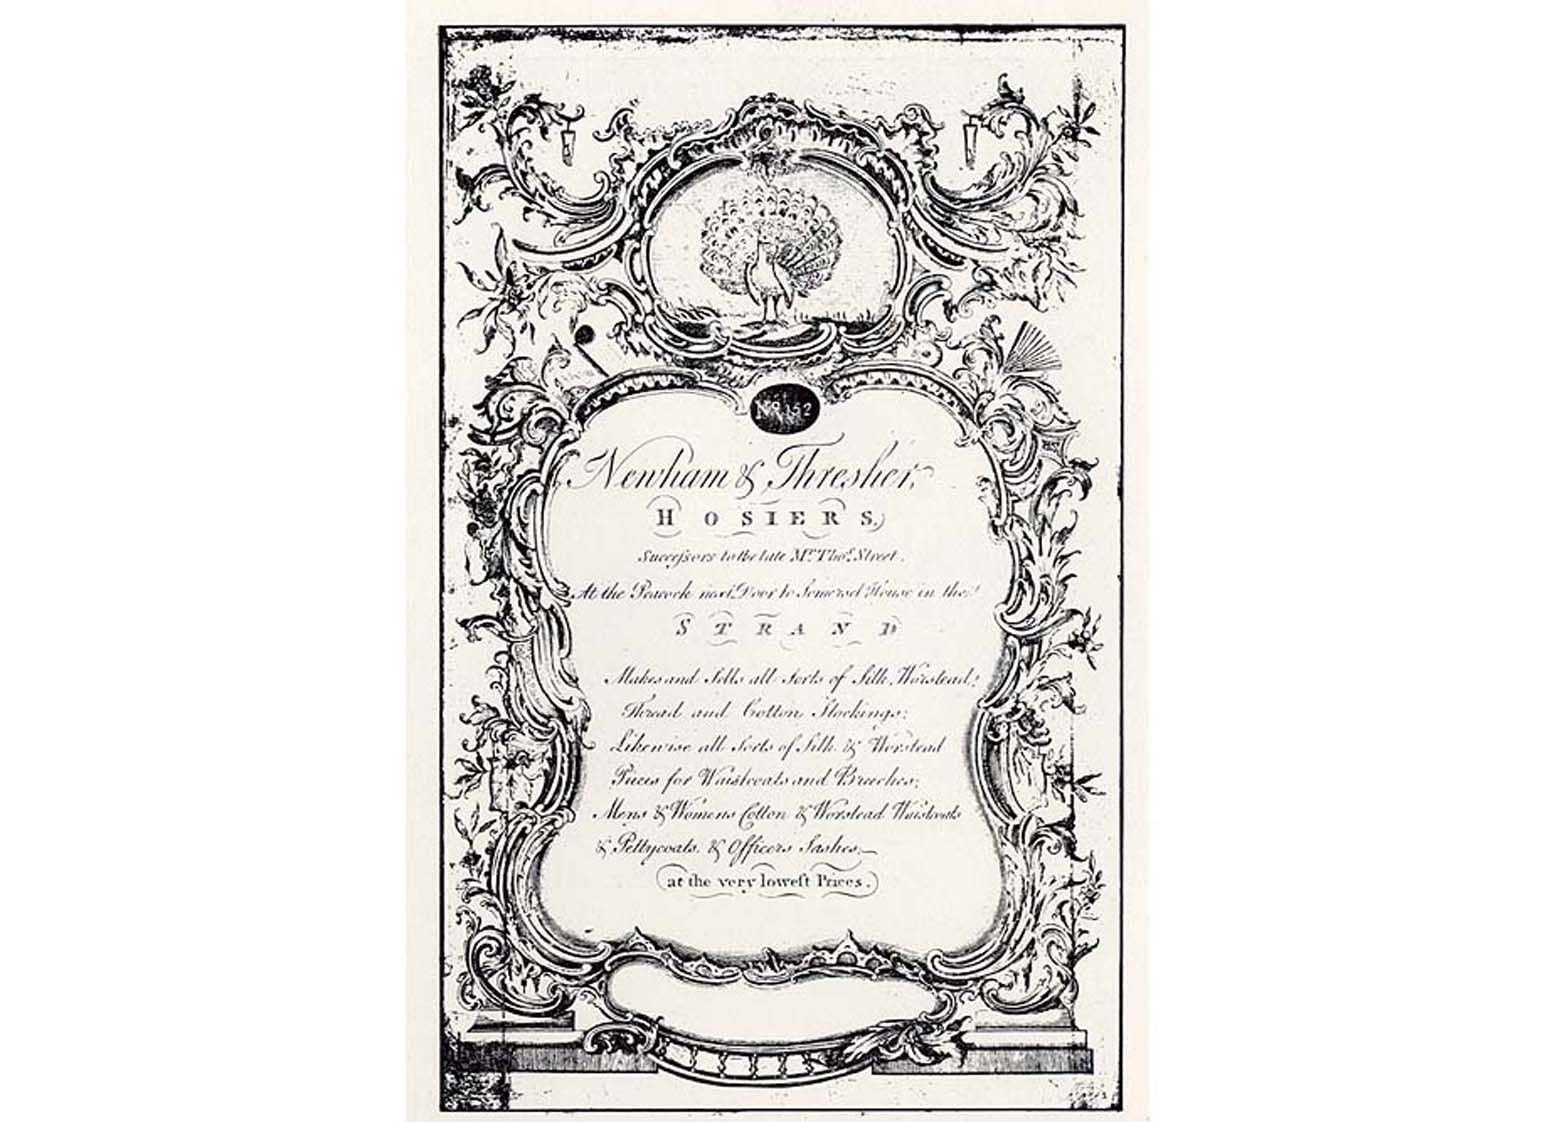 No. 152
Newham & Thresher,
HOSIERS,
Succeſsors to the late Mr. Thos. Street.
At the Peacock next Door to Somerset House in the
STRAND
Makes and Sells all Sorts of Silk, Worstead,
Thread and Cotton Stockings;
Likewise all Sorts of Silk & Worstead
Pieces for Waistcoats and Breeches;
Mens & Womens Cotton & Worstead Waistcoats
& Pettycoats, & Officers Sashes,
at the very loweſt Prices.